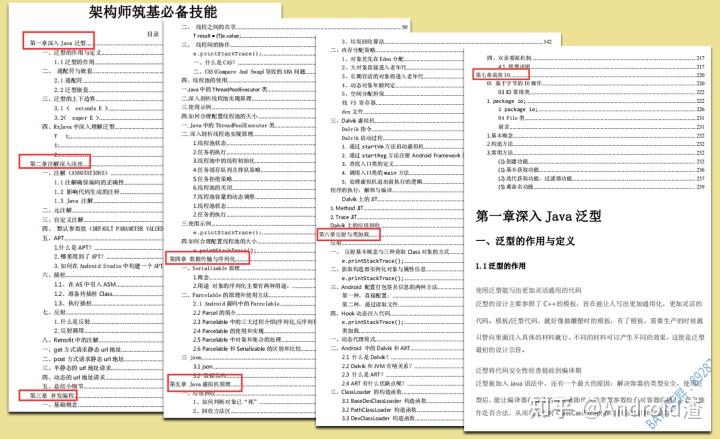 架构师筑基必备技能
目录
第一章深入 Java 泛型
一、泛型的作用与定义
1.1 泛型的作用
二、通配符与嵌套
2.1 通配符
2.2 泛型嵌套
三、泛型的上下边界
四、RxJava 中深入理解泛型
第二章注解深入浅出
一、注解（ANNOTATIONS）
1.1 注解确保编码的正确性
1.2 影响代码生成的注释
1.3 Java 注解
二、元注解
三、自定义注解
四、默认参数值（DEFAULT PARAMETER VALUES
五、APT
1.什么是 APT？
2.哪里用到了 APT？
3.如何在 Android Studio 中构建一个 APT
六、插桩
1.1、在 AS 中引入 ASM
1.2、准备待插桩 Class
1.3、执行插桩
七、反射
1.什么是反射
2.反射调用
八、Retrofit 中的注解
一、get 方式请求静态 url 地址
二、post 方式请求静态 url 地址
三、半静态的 url 地址请求
四、动态的 url 地址请求
五、总结小细节
第三章 并发编程
一、基础概念
二、线程之间的共享 59
T result = (T)e.value;
三、线程间的协作
e.printStackTrace();
一、什么是 CAS？
二、CAS(Compare And Swap)导致的 ABA 问题
四、线程池的使用
一.Java 中的 ThreadPoolExecutor 类
二.深入剖析线程池实现原理
三.使用示例
四.如何合理配置线程池的大小
一.Java 中的 ThreadPoolExecutor 类
二.深入剖析线程池实现原理
1.线程池状态
2.任务的执行
3.线程池中的线程初始化
4.任务缓存队列及排队策略
5.任务拒绝策略
6.线程池的关闭
7.线程池容量的动态调整
1.线程池状态
2.任务的执行
三.使用示例
e.printStackTrace();
四.如何合理配置线程池的大小
第四章 数据传输与序列化
一、Serializable 原理
1.概念
2.用途 对象的序列化主要有两种用途：
二、Parcelable 的原理和使用方法
2.1 Android 源码中的 Parcelable
2.2 Parcel 的简介
2.3 Parcelable 中的三大过程介绍(序列化,反序列
2.4 Parcelable 的使用和实现
2.5 Parcelable 中对象和集合的处理
2.6 Parcelable 和 Serializable 的区别和比较
三、Json
3.1.json
3.2 数据结构
第五章 Java 虚拟机原理
一、垃圾回收
1、如何判断对象已“死”
2、回收方法区
3、垃圾回收算法 142
二、内存分配策略
1、对象优先在 Eden 分配
2、大对象直接进入老年代
3、长期存活的对象将进入老年代
4、动态对象年龄判定
5、空间分配担保
栈 VS 寄存器
dex 文件
三、Dalvik 虚拟机
Dalvik 指令
Dalvik 启动过程
1. 通过 startVm 方法启动虚拟机
2. 通过 startReg 方法注册 Android Framework
3. 查找入口类的定义
4. 调用入口类的 main 方法
5. 处理虚拟机退出前执行的逻辑
程序的执行：解释与编译
Dalvik 上的 JIT
1. Method JIT
2. Trace JIT
Dalvik 垃圾回收
第六章反射与类加载
反射
一、反射基本概念与三种获取 Class 对象的方式
e.printStackTrace();
二、获取构造器实例化对象与属性信息
e.printStackTrace();
三、Android 配置打包签名信息的两种方法
第一种，直接配置：
第二种，通过读取文件
四、Hook 动态注入代码
e.printStackTrace();
类加载
一、动态代理模式
二、Android 中的 Dalvik 和 ART
2.1 什么是 Dalvik？
2.2 Dalvik 和 JVM 有啥关系？
2.3 什么是 ART？
2.4 ART 有什么优缺点呢？
三、ClassLoader 的构造函数
3.1 BaseDexClassLoader 构造函数
3.2 PathClassLoader 构造函数
3.3 DexClassLoader 构造函数
四、双亲委派机制 217
4.1 模型说明 217
第七章高效 IO 220
01 基于字节的 IO 操作 220
03 IO 常用类 222
1 package io; 222
1 package io; 226
04 File 类 231
前言 231
1.基本概念 232
2.构造方法 232
3.常用方法 232
(1).创建功能 232
(3).基本获取功能 236
(2).迭代获取功能，过滤器功能 237
(5).重命名功能 239
第一章深入 Java 泛型
一、泛型的作用与定义
1.1 泛型的作用
使用泛型能写出更加灵活通用的代码
泛型的设计主要参照了 C++的模板，旨在能让人写出更加通用化，更加灵活的
代码。模板/泛型代码，就好像做雕塑时的模板，有了模板，需要生产的时候就
只管向里面注入具体的材料就行，不同的材料可以产生不同的效果，这便是泛型
最初的设计宗旨。
泛型将代码安全性检查提前到编译期
泛型被加入 Java 语法中，还有一个最大的原因：解决容器的类型安全，使用泛
知乎 @Android渣